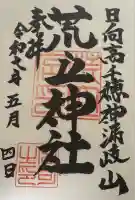 日向高千穂神漏岐山
荒立神社
奉拝
令和七年五月
四日